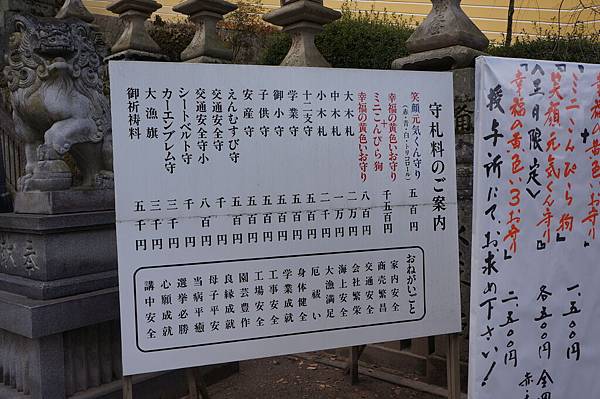 守札料のご案内
笑顔元気くん守り 五百円
(赤・青・白・トリコロール)
幸福の黄色いお守り
+
ミニこんぴら狗 千五百円
幸福の黄色いお守り 八百円
大木札 二万円
中木札 一万円
小木札 二千円
十二支守 五百円
学業守 五百円
御小守 五百円
子供守 五百円
安産守 五百円
えんむすび守 五百円
交通安全守 千円
交通安全守小 八百円
シートベルト守 千円
カーエンブレム守 三千円
大漁旗 三千円
御祈祷料 五千円
おねがいごと
家内安全
商売繁昌
交通安全
会社繁栄
海上安全
大漁満足
厄祓い
身体健全
学業成就
工事安全
工場安全
園芸豊作
良縁成就
母子平安
当病平癒
選挙必勝
心願成就
講中安全
+
『ミニこんぴら狗』 一、五〇〇円
『笑顔元気くん守り』 各五〇〇円
〈土日限定〉
『幸福の黄色いお守り 二、五〇〇円
授与所にて、お求め下さい!
奉
献